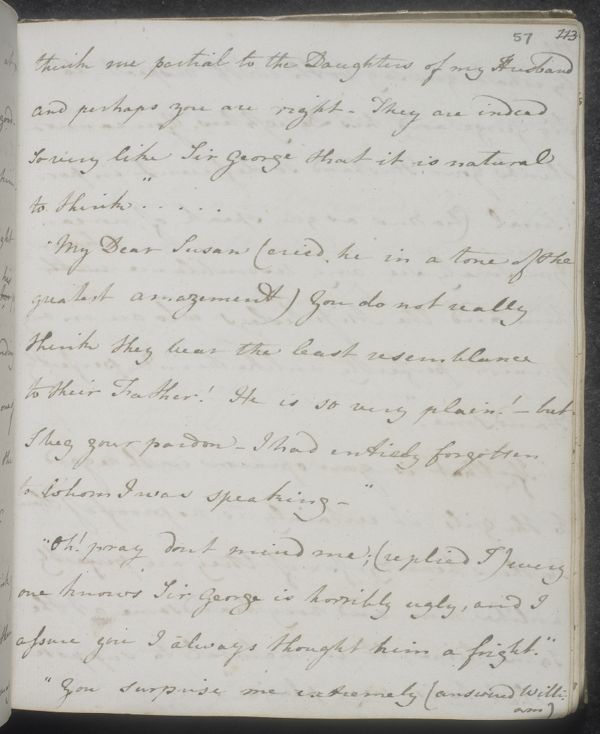 57 243
think me partial to the Daughters of my Husband
and perhaps you are right - They are indeed
so very like Sir George that it is natural
to think" . . . . .
"My Dear Susan (cried he in a tone of the
greatest amazement) You do not really
think they bear the least resemblance
to their Father! He is so very plain! - but
I beg your pardon - I had entirely forgotten
to whom I was speaking - "
"Oh! pray dont mind me; (replied I) every
one knows Sir George is horribly ugly, and I
assure you I always thought him a fright."
"You surprise me extremely (answered Willi-
am)